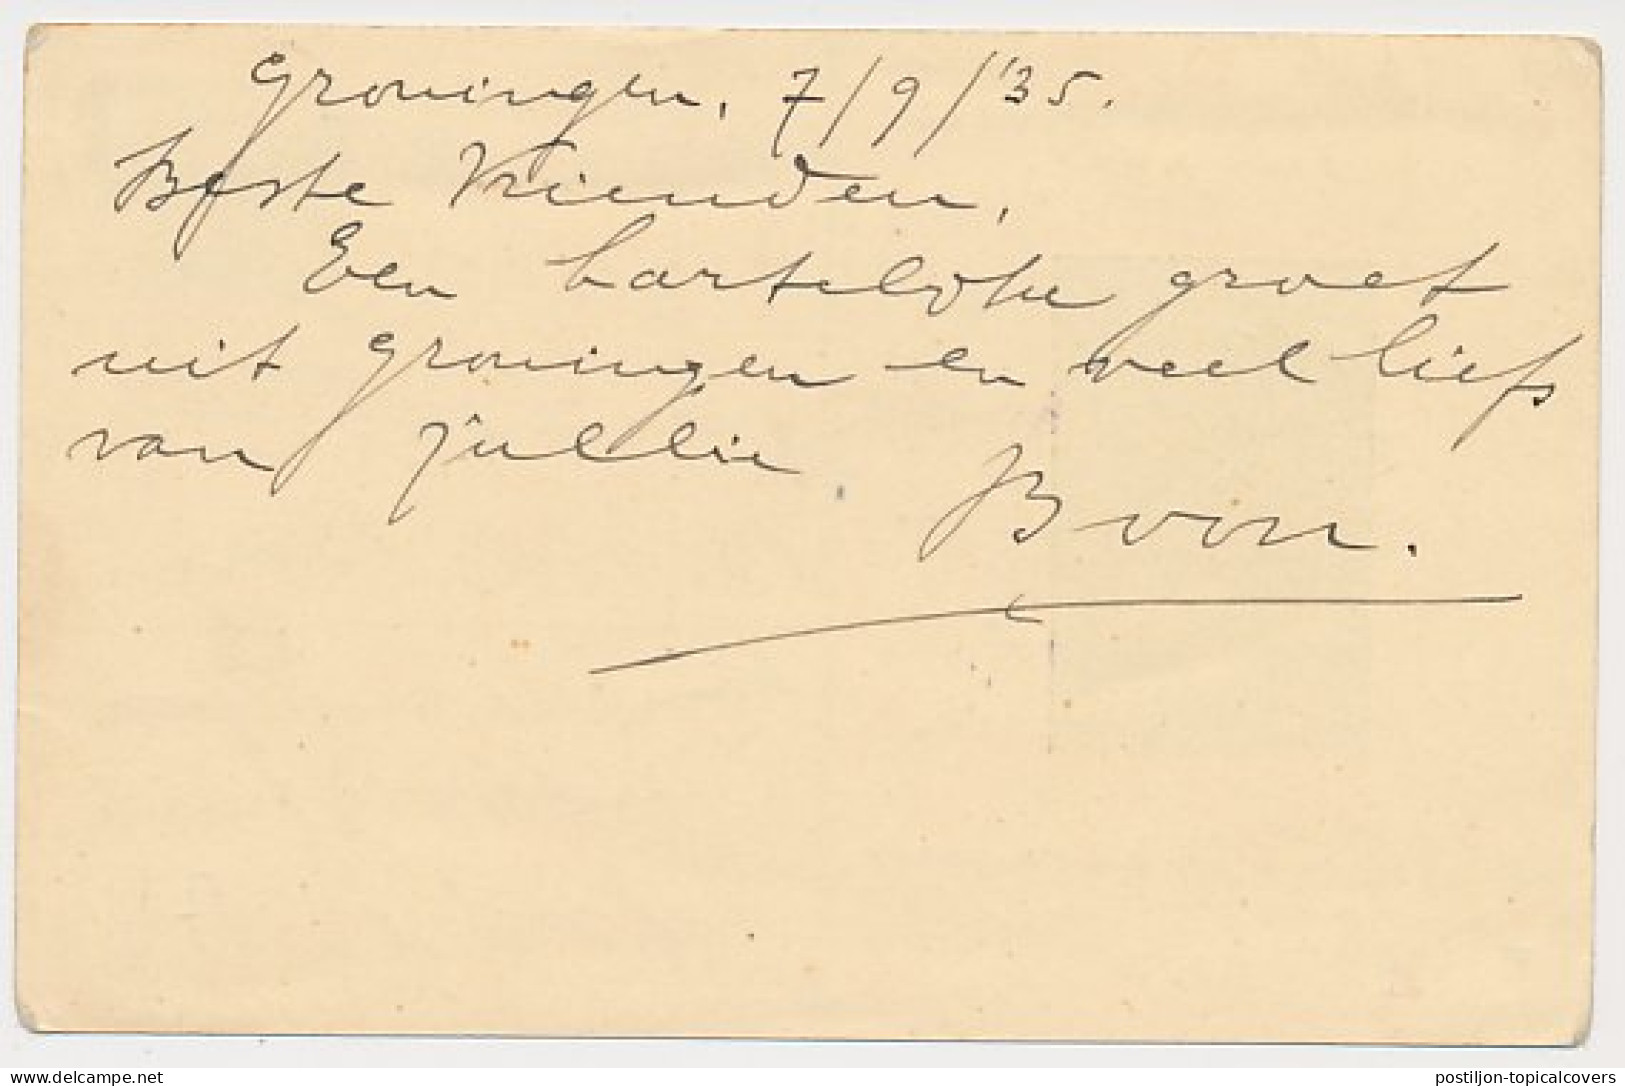 Groningen, 7/9/'35.
Beste Vrienden,
Een hartelijke groet
uit Groningen en veel liefs
van jullie
Boon.
postiljon-topicalcovers
delcampe.net